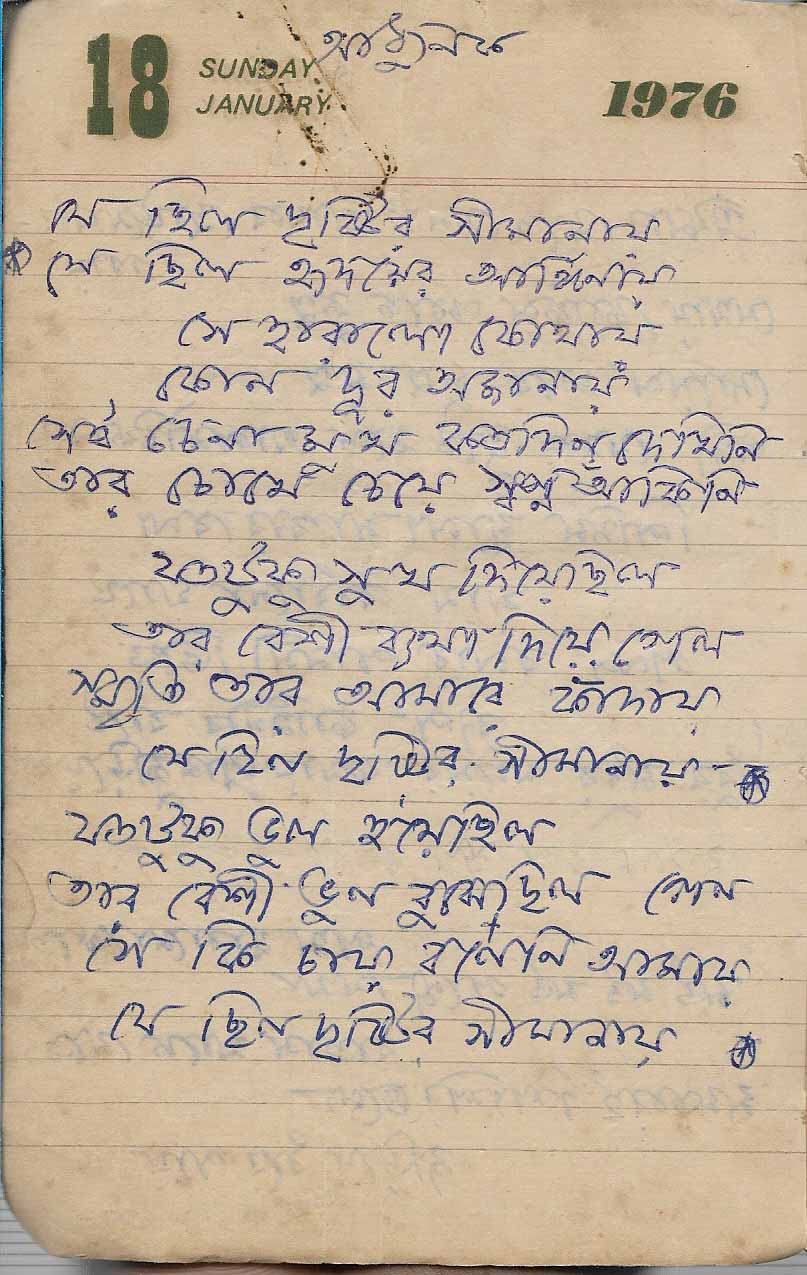 আধুনিক
18 SUNDAY JANUARY 1976
যে ছিল দৃষ্টির সীমানায়
যে ছিল হৃদয়ের আঙিনায়
সে হারালো কোথায়
কোন দূর অজানায়
সেই চেনা মুখ কতোদিন দেখিনি
তার চোখে চেয়ে স্বপ্ন আঁকিনি
যতটুকু সুখ দিয়েছিল
তার বেশী ব্যথা দিয়ে গেল
স্মৃতি তার আমারে কাঁদায়
যে ছিল দৃষ্টির সীমানায় -
যতটুকু ভুল হয়েছিল
তার বেশী ভুল বুঝেছিল
সে কি চায় বলেনি আমায়
যে ছিল দৃষ্টির সীমানায়